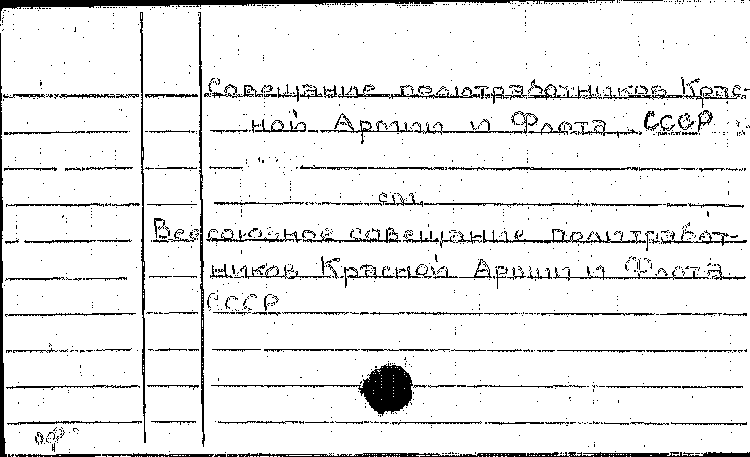 Совещание политработников Крас-
ной Армии и Флота СССР
см.
Всесоюзное совещание политработ-
ников Красной Армии и Флота
СССР